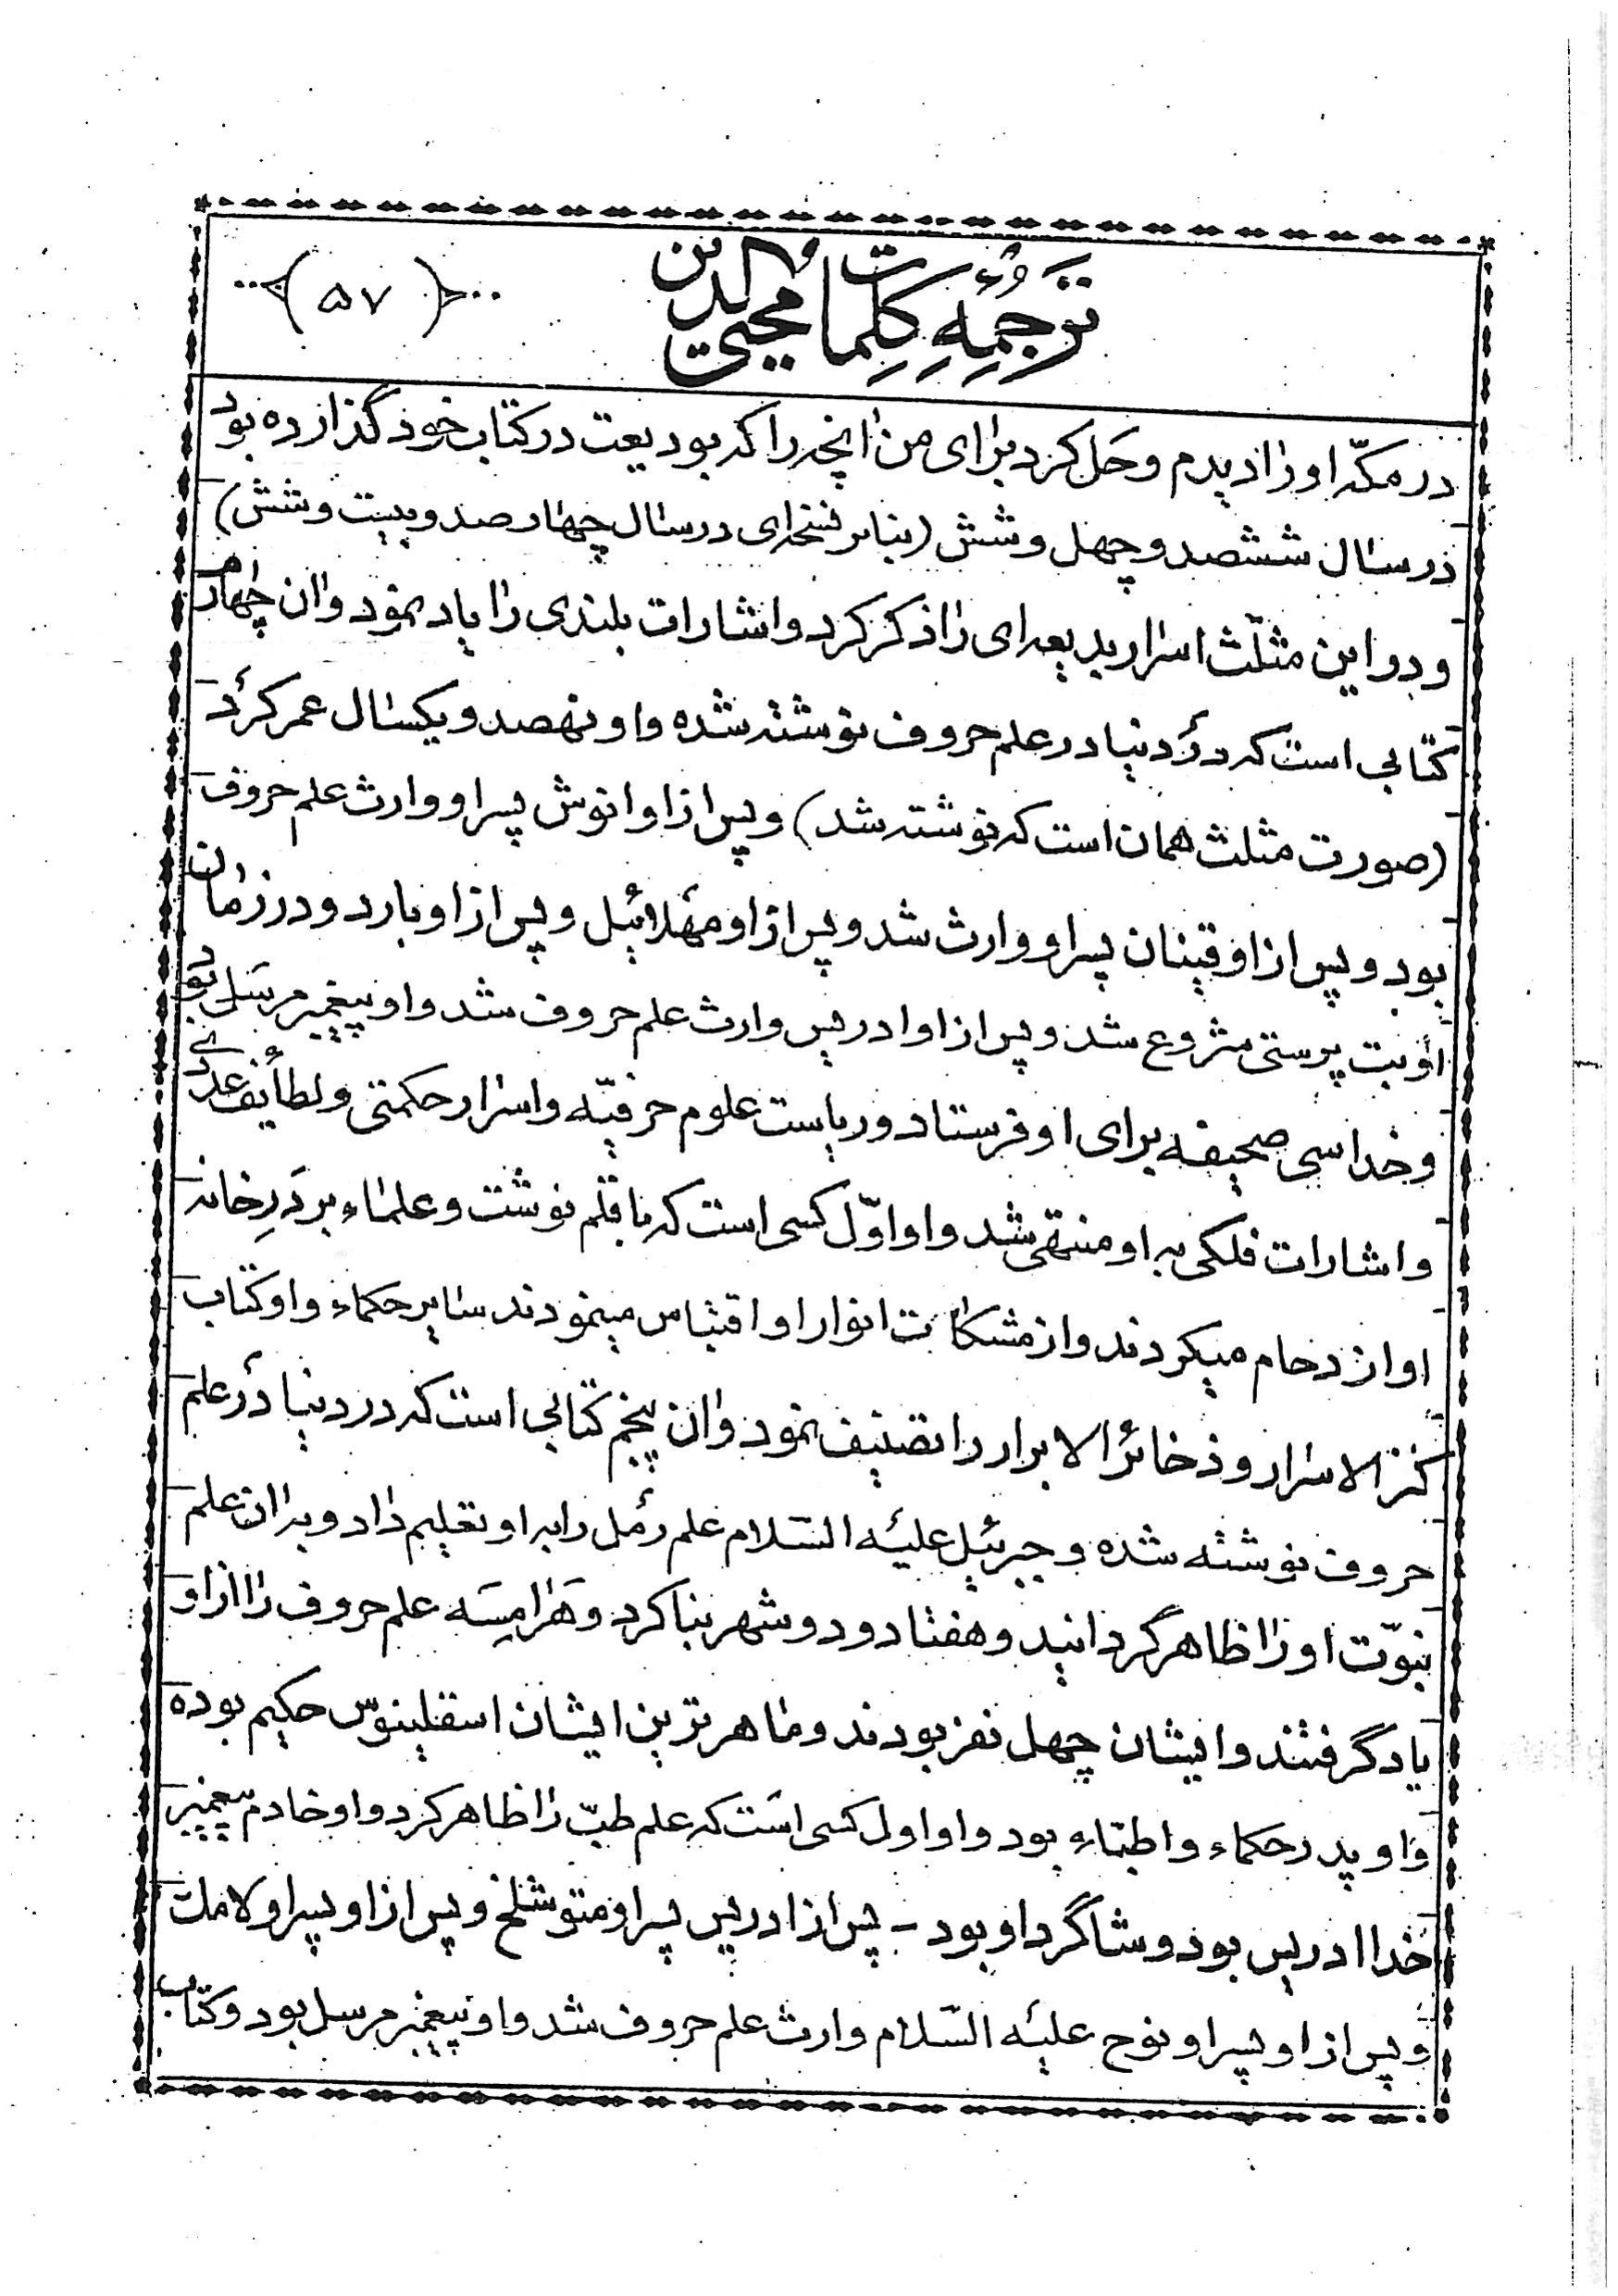 ترجمهٔ کلمات محیی الدین
(۵۷)
در مکّه او را دیدم و حَل کرد برای من آنچه را که بودیعت در کتاب خود گذارده بود
در سال ششصد و چهل و شش (بنابر نسخه‌ای در سال چهار صد و بیست و شش)
و در این مثلّث اسرار بدیعه‌ای را ذکر کرد و اشارات بلندی را یاد نمود و ان چهارم
کتابی است که در دنیا در علم حروف نوشته شده و او نهصد و یکسال عمر کرد
(صورت مثلث همان است که نوشته شد) و پس از او انوش پسر او وارث علم حروف
بود و پس از او قینان پسر او وارث شد و پس از او مهلائیل و پس از او یارد و در زمان
او بت پرستی شروع شد و پس از او ادریس وارث علم حروف شد و او پیغمبر مرسَل بود
و خدا سی صحیفه برای او فرستاد و ریاست علوم حرفیّه و اسرار حکمتی و لطائف عددی
و اشارات فلکی به او منتهی شد و او اوّل کسی است که با قلم نوشت و علماء بر دَرِ خانه
او ازدحام میکردند و از مشکات انوار او اقتباس مینمودند سایر حکماء و او کتاب
کنز الاسرار و ذخائر الابرار را تصنیف نمود و ان پنجم کتابی است که در دنیا در علم
حروف نوشته شده و جبرئیل علیه السّلام علم رمل را به او تعلیم داد و به ان علم
نبوّت او را ظاهر گردانید و هفتاد و دو شهر بنا کرد و هَرامِسَه علم حروف را از او
یاد گرفتند و ایشان چهل نفر بودند و ماهر ترین ایشان اسقلینوس حکیم بوده
و او پدر حکماء و اطبّاء بود و او اول کسی است که علم طبّ را ظاهر کرد و او خادم پیغمبر
خدا ادریس بود و شاگرد او بود - پس از ادریس پسر او متوشلخ و پس از او پسر او لامک
و پس از او پسر او نوح علیه السّلام وارث علم حروف شد و او پیغمبر مرسل بود و کتاب